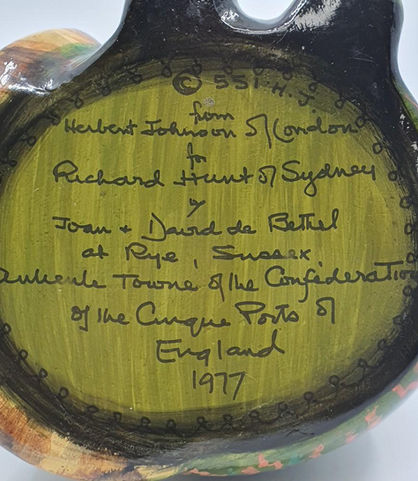 © 551 H.J.
from
Herbert Johnson of London
for
Richard Hunt of Sydney
by
Joan + David de Bethel
at Rye, Sussex,
Towne of the Confederation
of the Cinque Ports of
England
1977